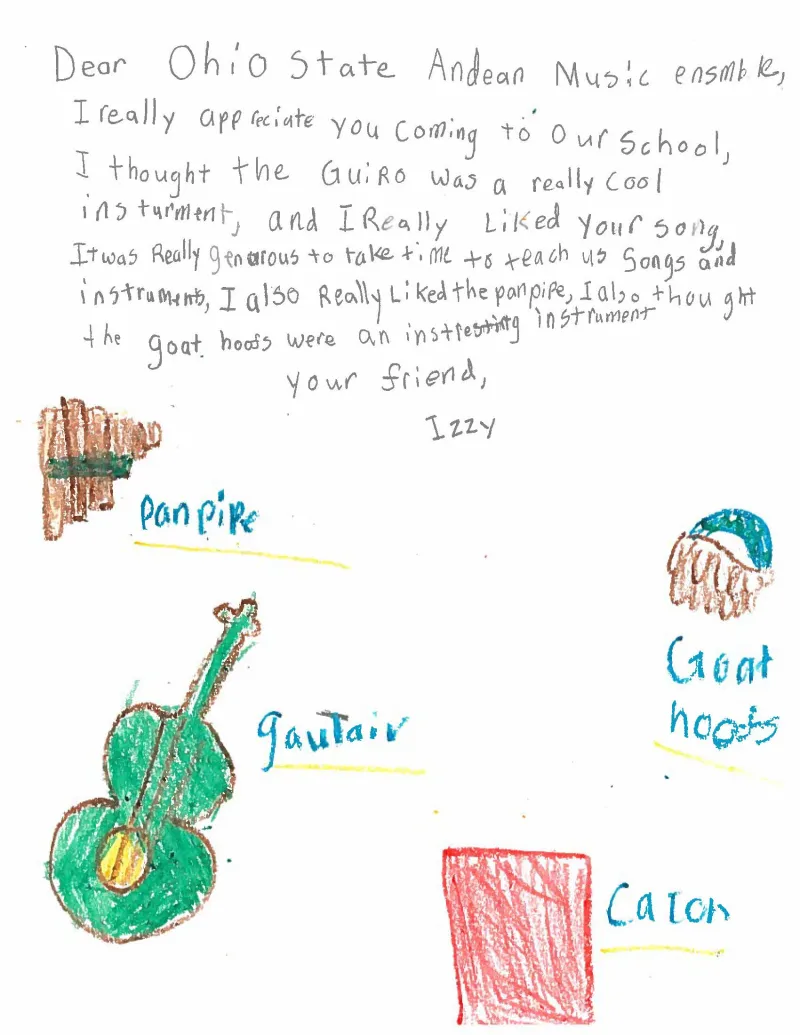 Dear Ohio State Andean Music ensmble,
I really appreciate you coming to our school,
I thought the GuiRo was a really cool
insturment, and I Really Liked Your song,
It was Really generous to take time to teach us Songs and
instruments, I also Really Liked the panpipe, I also thought
the goat hoofs were an instresting instrument
your friend,
Izzy
panpipe
Goat
hoofs
gautair
Caton